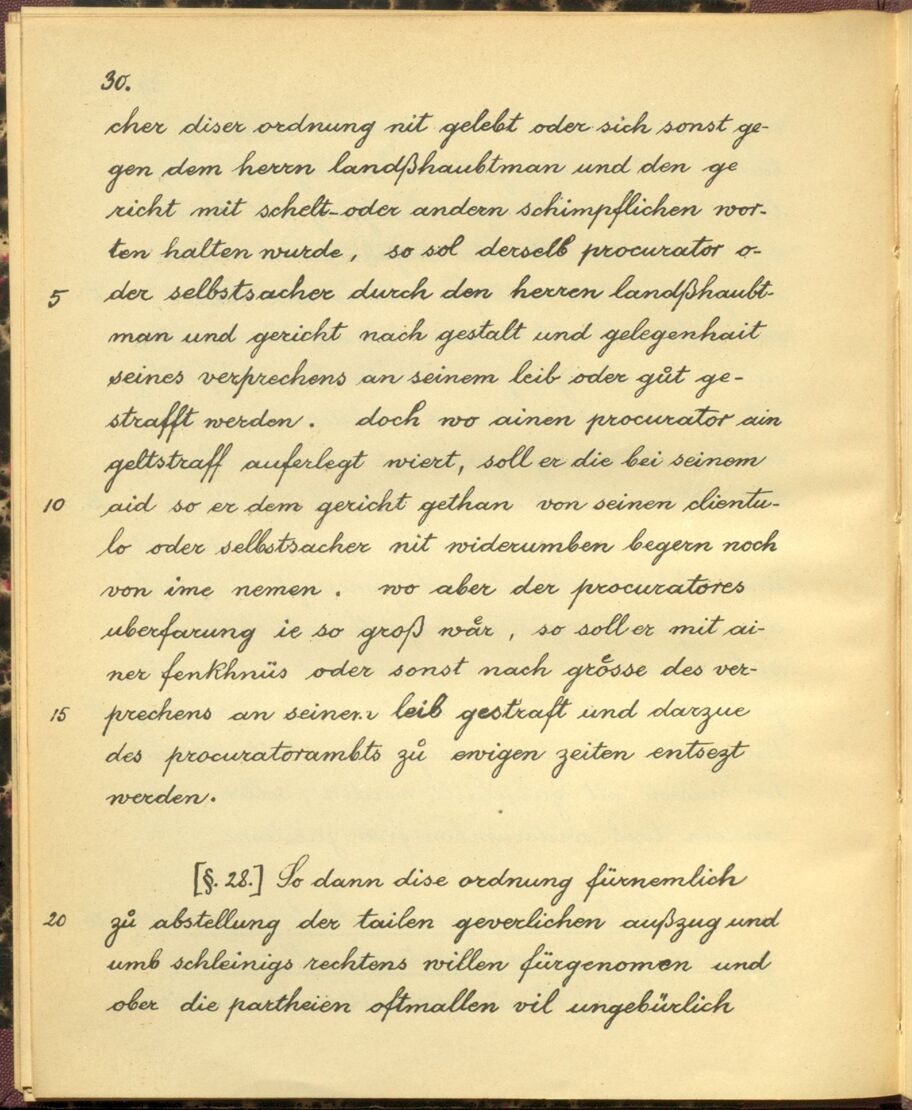 30.
cher diser ordnung nit gelebt oder sich sonst ge-
gen dem herrn landßhaubtman und den ge
richt mit schelt- oder andern schimpflichen wor-
ten halten wurde, so sol derselb procurator o-
5 der selbstsacher durch den herren landßhaubt-
man und gericht nach gestalt und gelegenhait
seines verprechens an seinem leib oder gůt ge-
strafft werden. doch wo ainen procurator ain
geltstraff auferlegt wiert, soll er die bei seinem
10 aid so er dem gericht gethan von seinen clientu-
lo oder selbstsacher nit widerumben begern noch
von ime nemen. wo aber der procuratores
uberfarung ie so groß wår, so soll er mit ai-
ner fenkhnüs oder sonst nach grösse des ver-
15 prechens an seinem leib gestraft und darzue
des procuratorambts zů ewigen zeiten entsezt
werden.
[§. 28.] So dann dise ordnung fürnemlich
20 zů abstellung der tailen geverlichen außzug und
umb schleinigs rechtens willen fürgenomen und
ober die partheien oftmallen vil ungebürlich